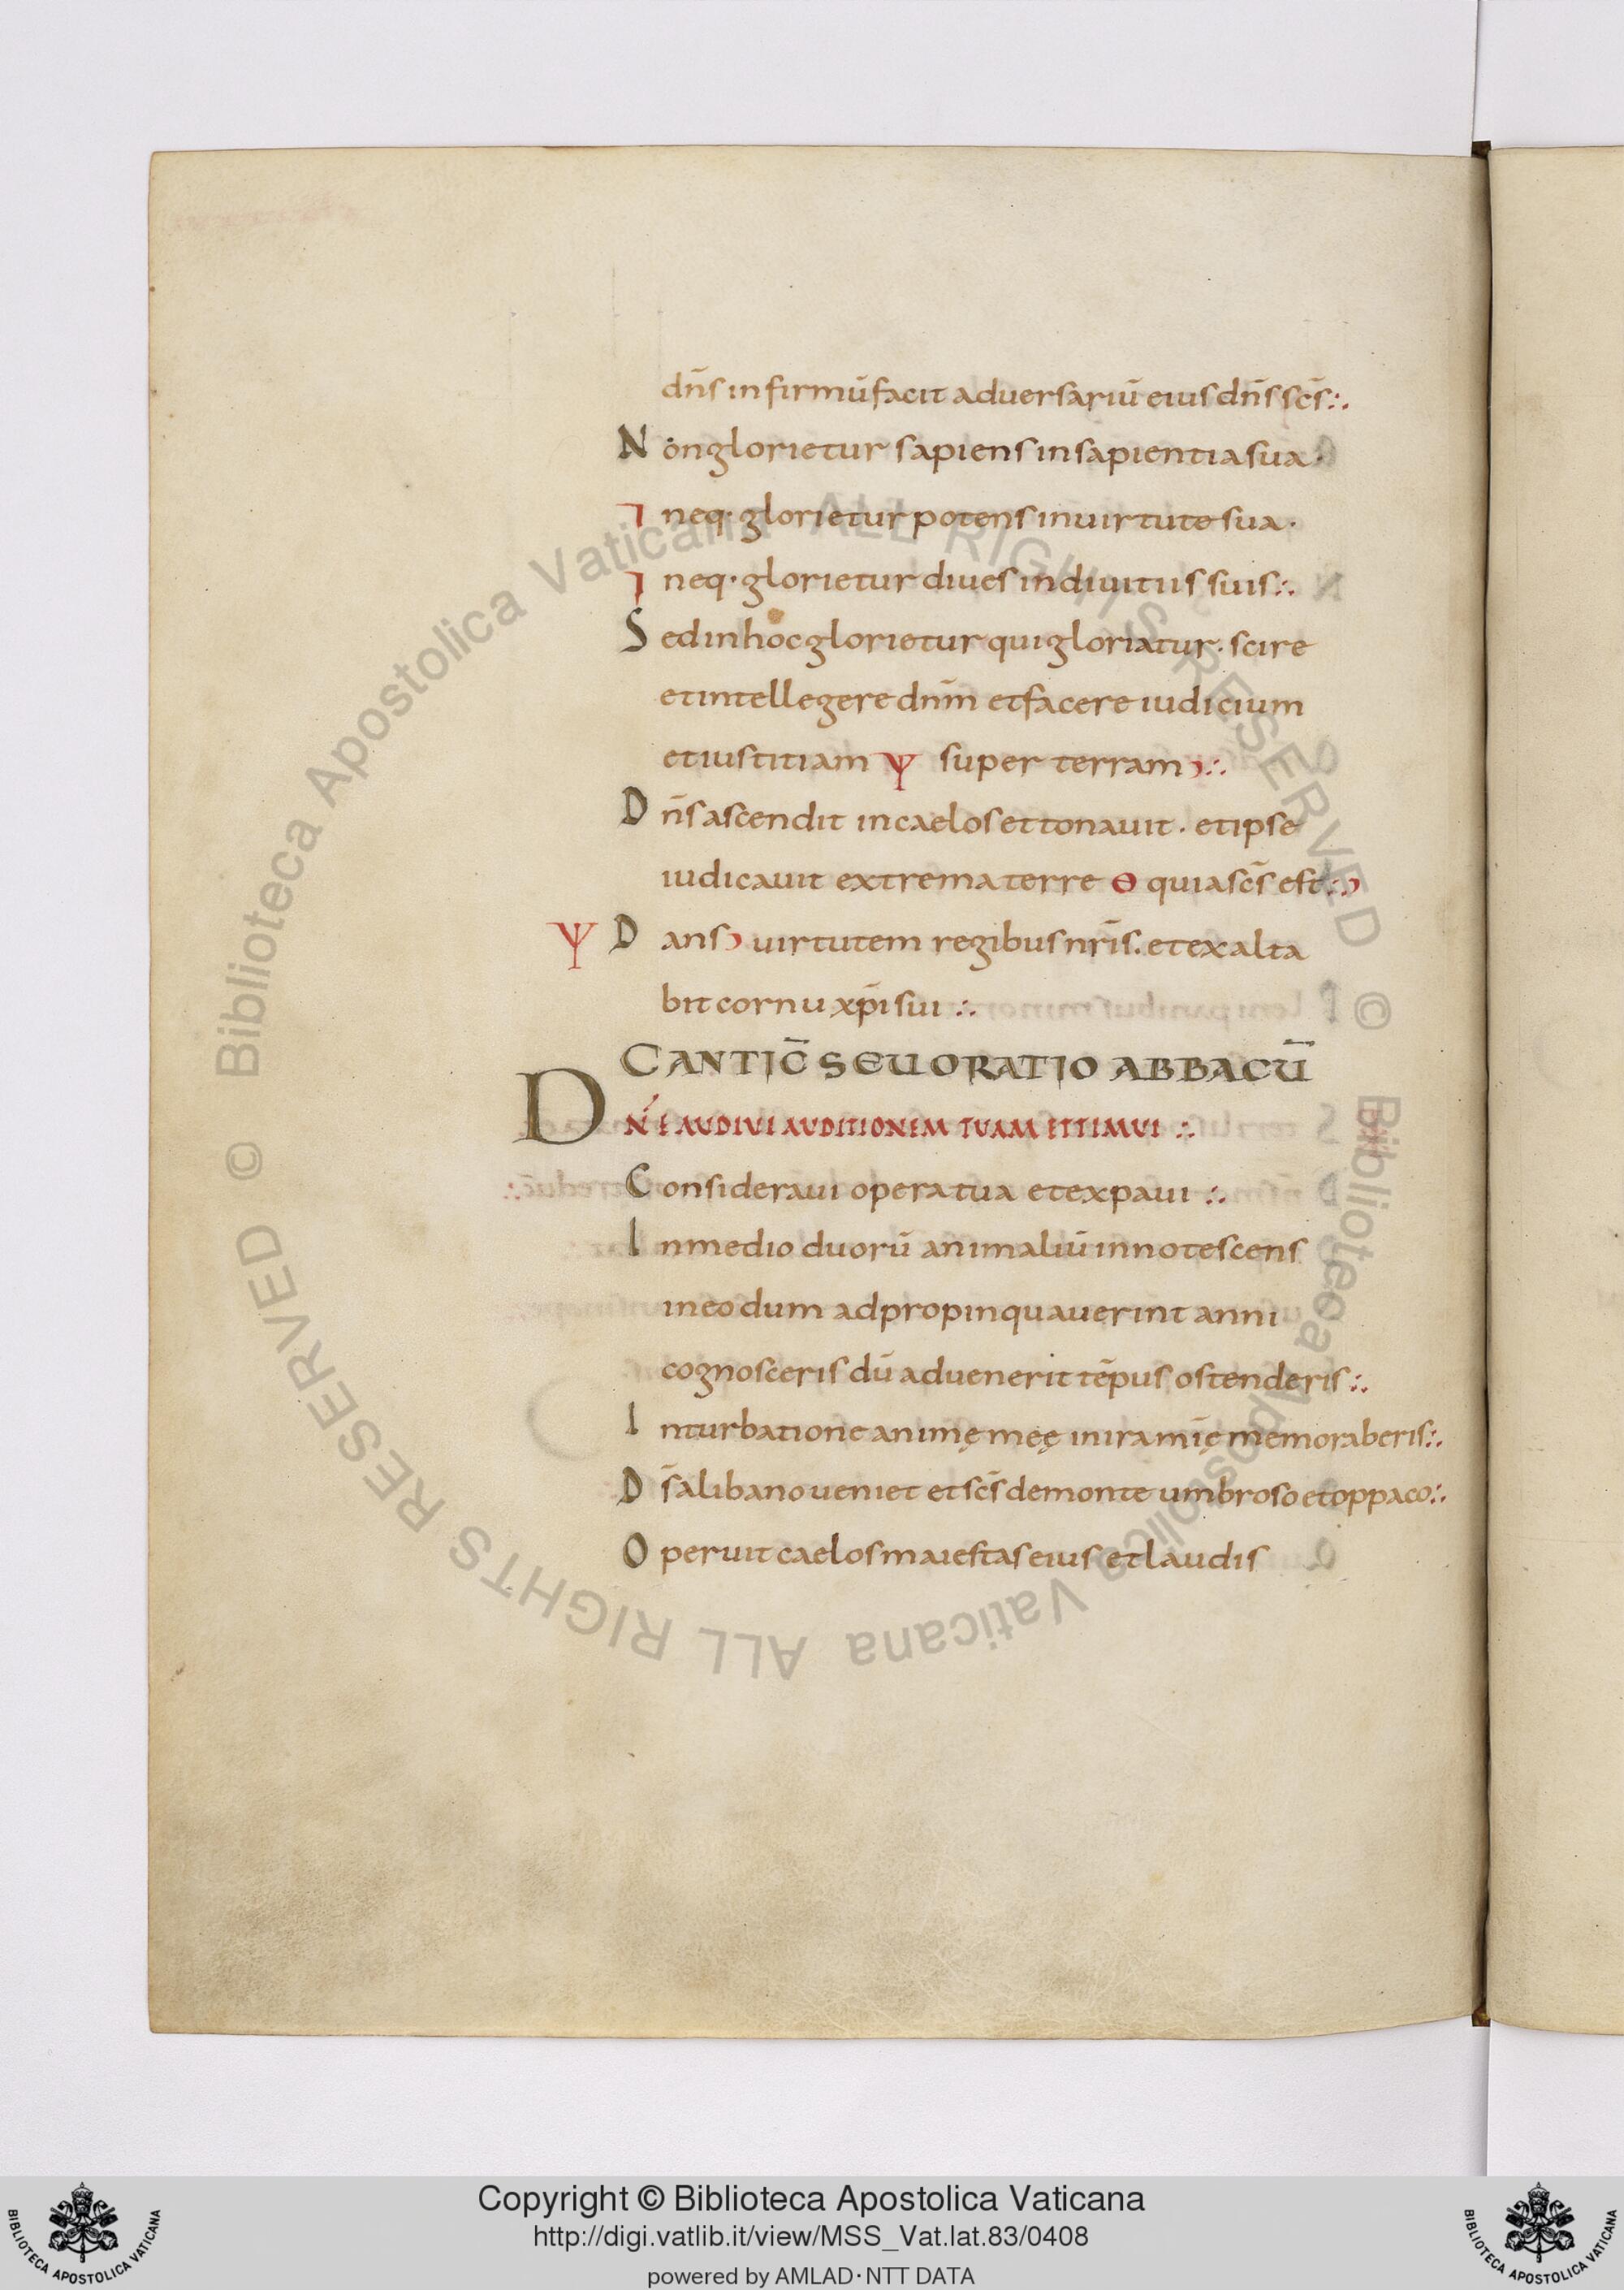 dn̄s infirmū facit adversariū eius dn̄s sc̄s:.
Non glorietur sapiens in sapientia sua.
⁊ neq· glorietur potens in uirtute sua.
⁊ neq· glorietur diues in diuitiis suis:.
Sed in hoc glorietur qui gloriatur. scire
et intellegere dnm̄ et facere iudicium
et iustitiam Ψ super terram:.
Dn̄s ascendit in caelos et tonauit. et ipse
iudicauit extrema terre Θ quia sc̄s est:.
Ψ Dans uirtutem regibus nr̄is. et exalta
bit cornu xp̄i sui :.
CANTIC̄ SEU ORATIO ABBACŪ
DN̄E AUDIUI AUDITIONEM TUAM ET TIMUI :.
Consideraui opera tua et expaui :.
In medio duorū animaliū innotescens
in eo dum adpropinquauerint anni
cognosceris dū aduenerit tēpus ostenderis:.
In turbatione animę meę in ira mīę memoraberis:.
Ds̄ a libano ueniet et sc̄s de monte umbroso et oppaco:.
Operuit caelos maiestas eius et laudis
© Biblioteca Apostolica Vaticana ALL RIGHTS RESERVED © Biblioteca Apostolica Vaticana ALL RIGHTS RESERVED
Copyright © Biblioteca Apostolica Vaticana
http://digi.vatlib.it/view/MSS_Vat.lat.83/0408
powered by AMLAD·NTT DATA
BIBLIOTECA APOSTOLICA VATICANA
BIBLIOTECA APOSTOLICA VATICANA